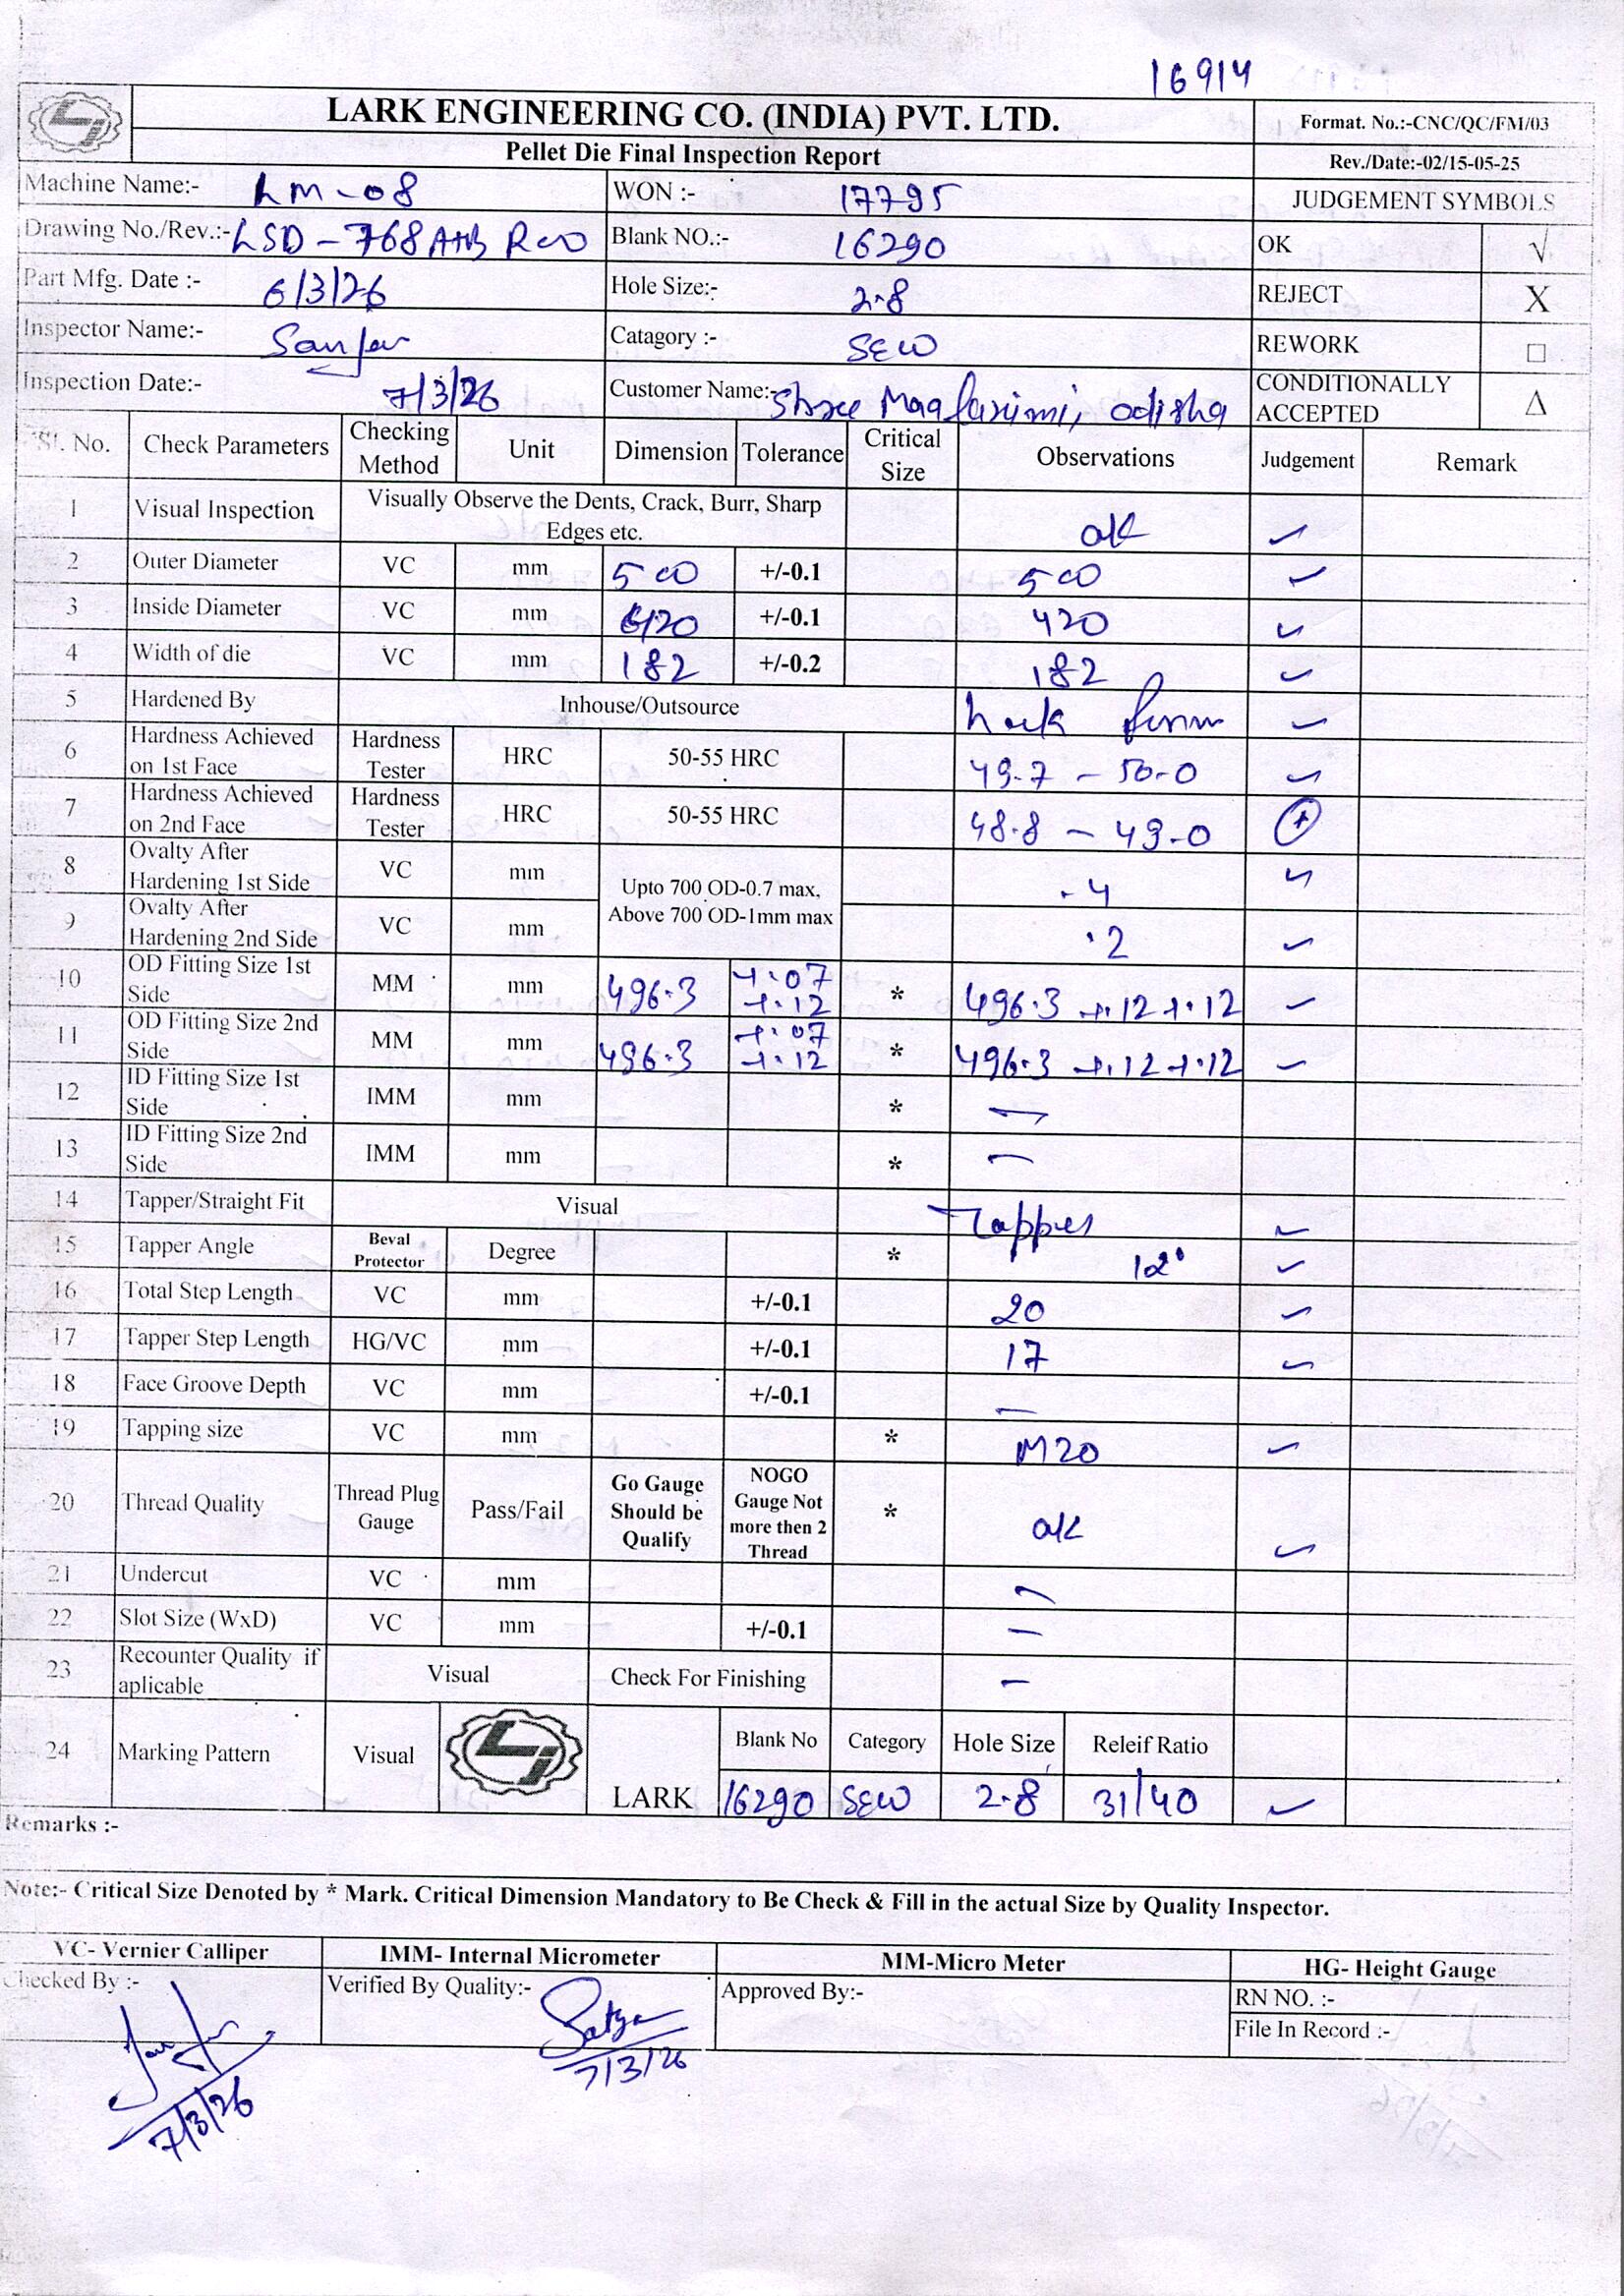 16914
LARK ENGINEERING CO. (INDIA) PVT. LTD.
Format. No.:-CNC/QC/FM/03
Pellet Die Final Inspection Report
Rev./Date:-02/15-05-25
Machine Name:- LM-08 WON :- 17795 JUDGEMENT SYMBOLS
Drawing No./Rev.:- LSD-768 A+B R00 Blank NO.:- 16290 OK √
Part Mfg. Date :- 6/3/26 Hole Size:- 2.8 REJECT X
Inspector Name:- Catagory :- SEW REWORK □
Inspection Date:- 7/3/26 Customer Name:- Shree Maa odisha CONDITIONALLY ACCEPTED Δ
Sl. No. Check Parameters Checking Method Unit Dimension Tolerance Critical Size Observations Judgement Remark
1 Visual Inspection Visually Observe the Dents, Crack, Burr, Sharp Edges etc. ok ✓
2 Outer Diameter VC mm 500 +/-0.1 500 ✓
3 Inside Diameter VC mm 420 +/-0.1 420 ✓
4 Width of die VC mm 182 +/-0.2 182 ✓
5 Hardened By Inhouse/Outsource ✓
6 Hardness Achieved on 1st Face Hardness Tester HRC 50-55 HRC 49.7 - 50.0 ✓
7 Hardness Achieved on 2nd Face Hardness Tester HRC 50-55 HRC 48.8 - 49.0
8 Ovalty After Hardening 1st Side VC mm Upto 700 OD-0.7 max, Above 700 OD-1mm max .4 ✓
9 Ovalty After Hardening 2nd Side VC mm .2 ✓
10 OD Fitting Size 1st Side MM mm 496.3 +.07 +.12 * 496.3 +.12 +.12 ✓
11 OD Fitting Size 2nd Side MM mm 496.3 +.07 +.12 * 496.3 +.12 +.12 ✓
12 ID Fitting Size 1st Side IMM mm * -
13 ID Fitting Size 2nd Side IMM mm * -
14 Tapper/Straight Fit Visual Tapper ✓
15 Tapper Angle Beval Protector Degree * 12° ✓
16 Total Step Length VC mm +/-0.1 20 ✓
17 Tapper Step Length HG/VC mm +/-0.1 17 ✓
18 Face Groove Depth VC mm +/-0.1 -
19 Tapping size VC mm * M20 ✓
20 Thread Quality Thread Plug Gauge Pass/Fail Go Gauge Should be Qualify NOGO Gauge Not more then 2 Thread * ok ✓
21 Undercut VC mm -
22 Slot Size (WxD) VC mm +/-0.1 -
23 Recounter Quality if aplicable Visual Check For Finishing -
24 Marking Pattern Visual LARK Blank No Category Hole Size Releif Ratio
16290 SEW 2.8 31/40 ✓
Remarks :-
Note:- Critical Size Denoted by * Mark. Critical Dimension Mandatory to Be Check & Fill in the actual Size by Quality Inspector.
VC- Vernier Calliper IMM- Internal Micrometer MM-Micro Meter HG- Height Gauge
Checked By :- Verified By Quality:- Approved By:- RN NO. :-
File In Record :-
7/3/26 7/3/26